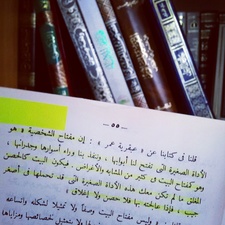 — ٥٥ —
قلنا في كتابنا عن « عبقرية عمر » : إن مفتاح الشخصية « هو
الأداة الصغيرة التي تفتح لنا أبوابها ، وتنفذ بنا وراء أسوارها وجدرانها ،
وهو كمفتاح البيت في كثير من المشابه والأغراض . فيكون البيت كالحصن
المغلق ما لم تكن معك هذه الأداة الصغيرة التي قد تحملها في أصغر
جيب ، فإذا عالجته بها فلا حصن ولا إغلاق »
« وليس مفتاح البيت وصفًا ولا تمثيلًا لشكله واتساعه